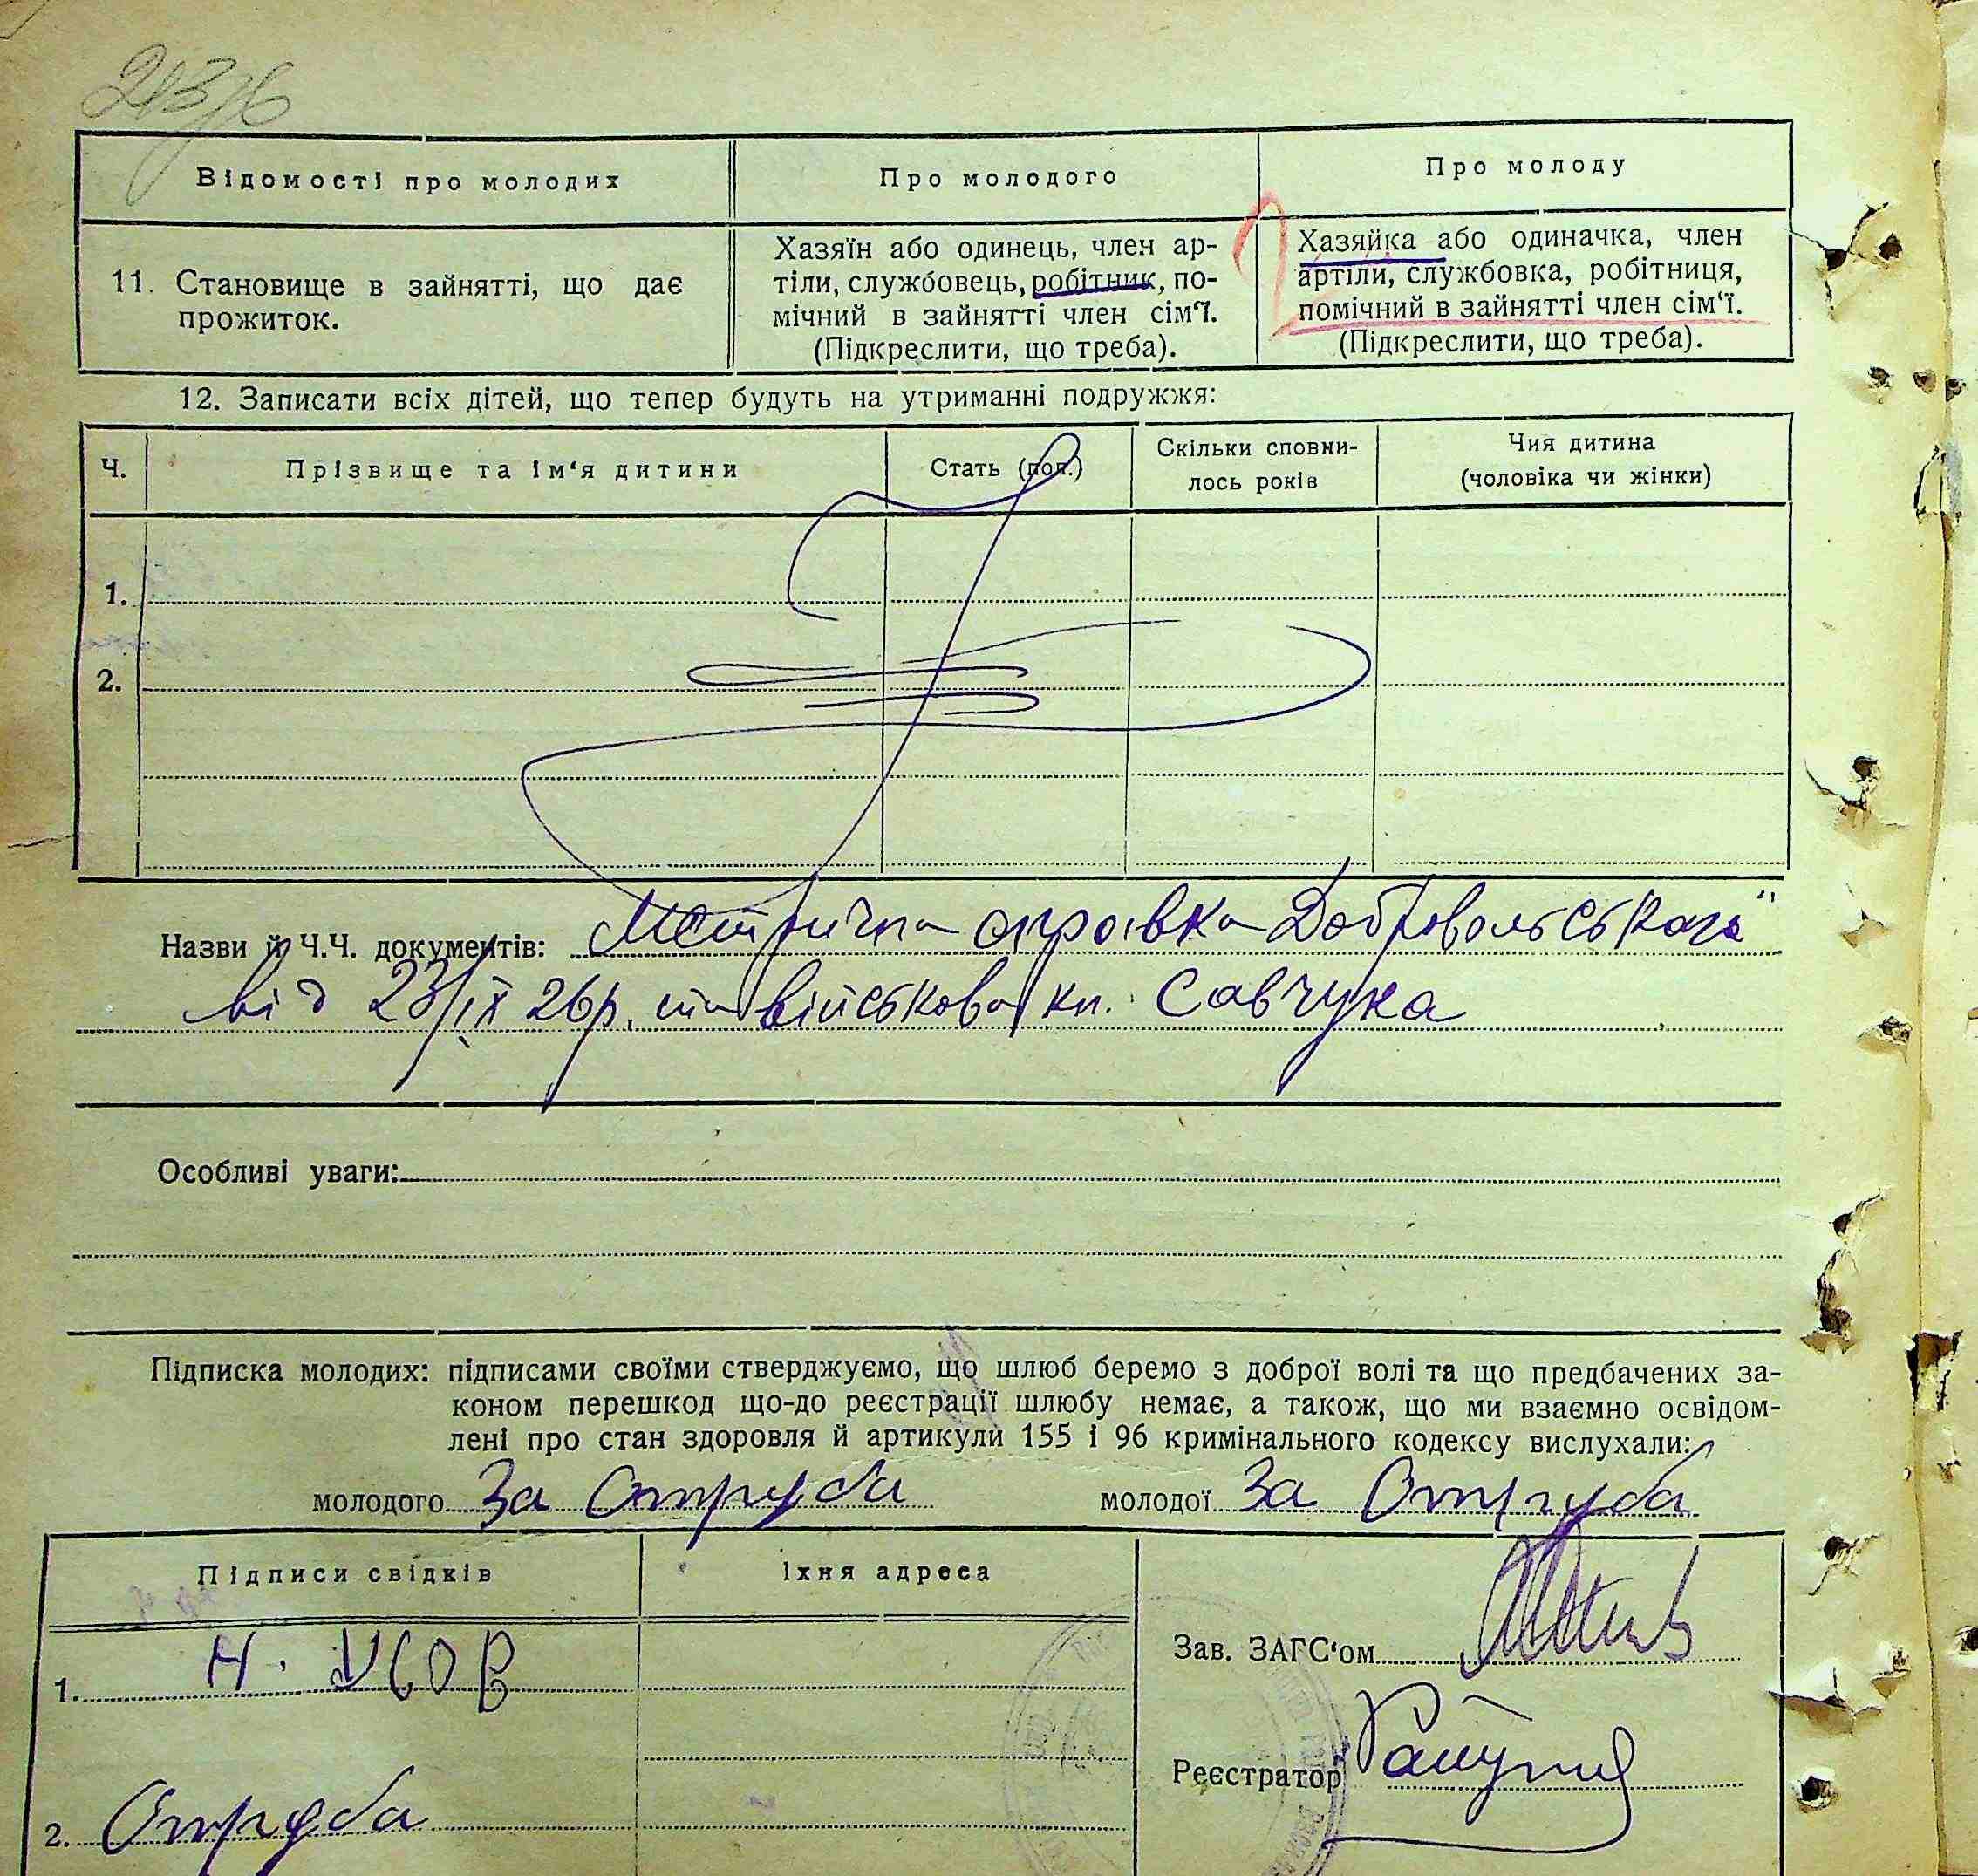 Відомості про молодих
Про молодого
Про молоду
11. Становище в зайнятті, що дає
прожиток.
Хазяїн або одинець, член ар-
тіли, службовець, робітник, по-
мічний в зайнятті член сім'ї.
(Підкреслити, що треба).
Хазяйка або одиначка, член
артіли, службовка, робітниця,
помічний в зайнятті член сім'ї.
(Підкреслити, що треба).
12. Записати всіх дітей, що тепер будуть на утриманні подружжя:
Ч.
Прізвище та ім'я дитини
Стать (поп.)
Скільки сповни-
лось років
Чия дитина
(чоловіка чи жінки)
1.
2.
Назви й Ч.Ч. документів: Метрична справка Добровольського
від 23/ІХ 26р. та військова кн. Савчука
Особливі уваги:
Підписка молодих: підписами своїми стверджуємо, що шлюб беремо з доброї волі та що предбачених за-
коном перешкод що-до реєстрації шлюбу немає, а також, що ми взаємно освідом-
лені про стан здоровля й артикули 155 і 96 кримінального кодексу вислухали:
молодого За Отруба
молодої За Отруба
Підписи свідків
Їхня адреса
1. Н. Усов
2. Отруба
Зав. ЗАГС'ом
Реєстратор